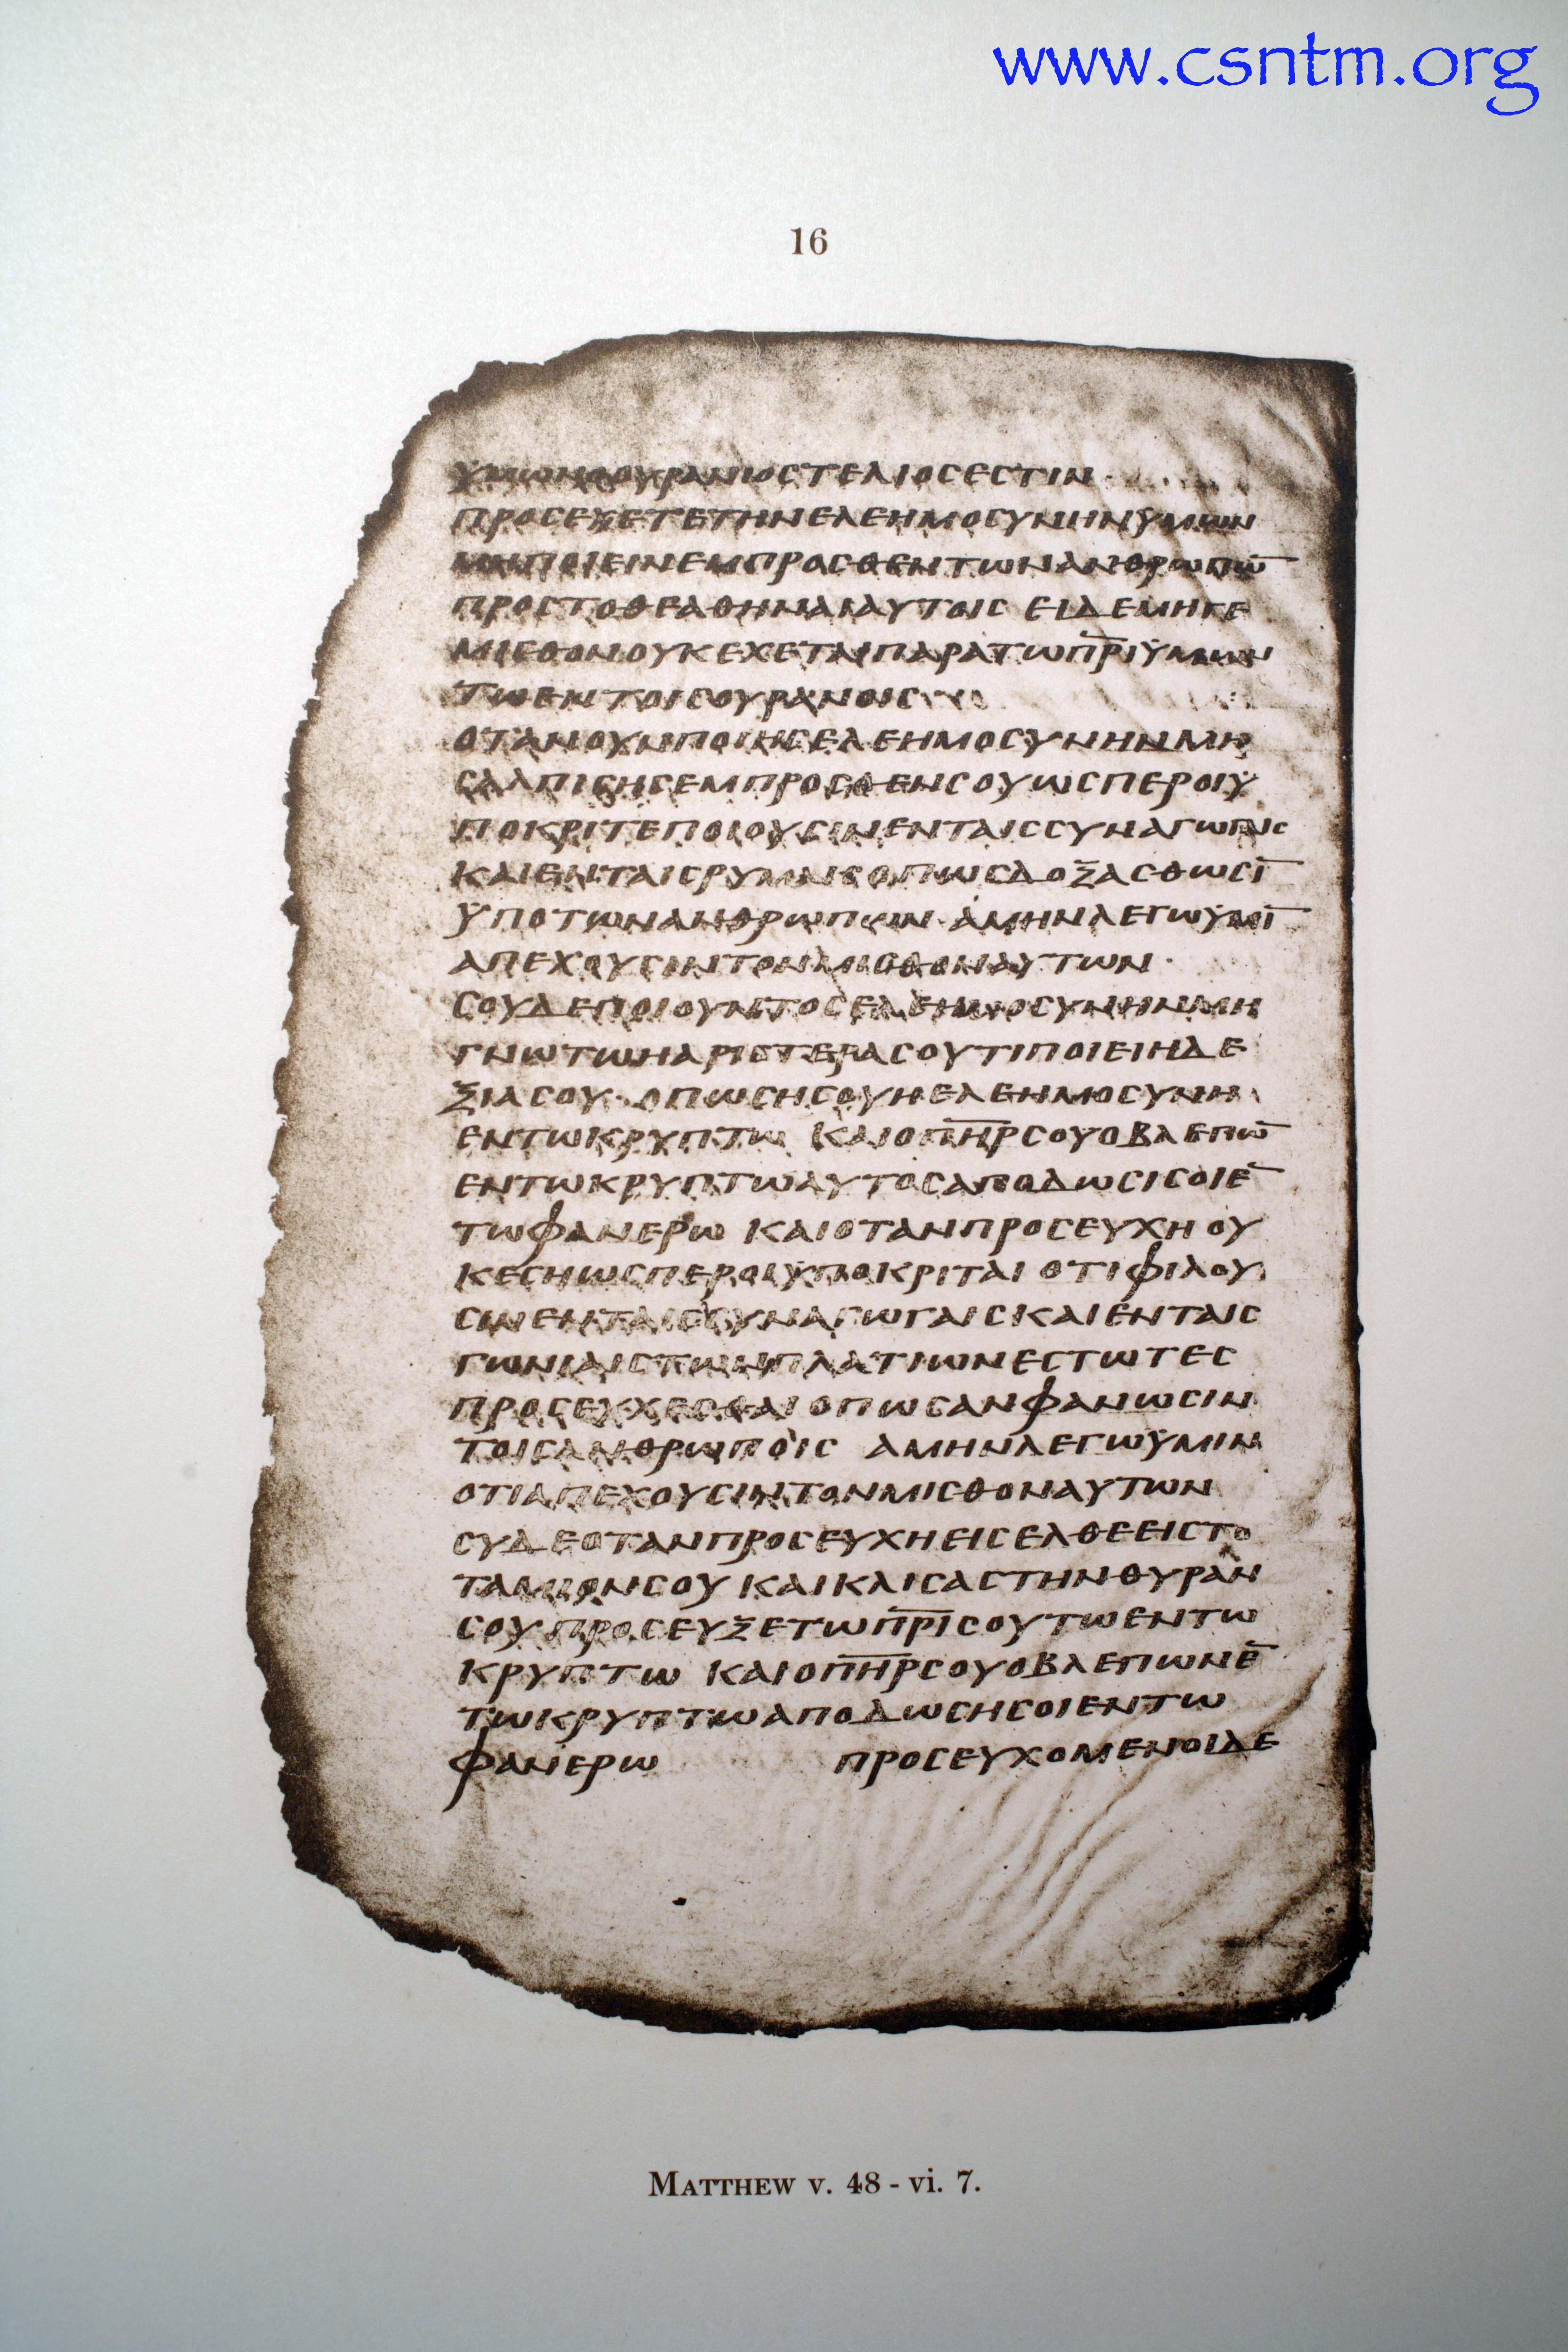 www.csntm.org
16
ΥΜΩΝΟΟΥΡΑΝΙΟCΤΕΛΙΟCΕCΤΙΝ
ΠΡΟCΕΧΕΤΕΤΗΝΕΛΕΗΜΟCΥΝΗΝΫΜΩΝ
ΜΗΠΟΙΕΙΝΕΜΠΡΟCΘΕΝΤΩΝΑΝΘΡΩΠΩ̅
ΠΡΟCΤΟΘΕΑΘΗΝΑΙΑΥΤΟΙC ΕΙΔΕΜΗΓΕ
ΜΙCΘΟΝΟΥΚΕΧΕΤΑΙΠΑΡΑΤΩΠ̅Ρ̅Ι̅ΫΜΩΝ
ΤΩΕΝΤΟΙCΟΥΡΑΝΟΙC
ΟΤΑΝΟΥΝΠΟΙΗCΕΛΕΗΜΟCΥΝΗΝΜΗ
CΑΛΠΙCΗCΕΜΠΡΟCΘΕΝCΟΥΩCΠΕΡΟΙΫ
ΠΟΚΡΙΤΕΠΟΙΟΥCΙΝΕΝΤΑΙCCΥΝΑΓΩΓΑΙC
ΚΑΙΕΝΤΑΙCΡΥΜΑΙCΟΠΩCΔΟΞΑCΘΩCΙ̅
ΫΠΟΤΩΝΑΝΘΡΩΠΩΝ·ΑΜΗΝΛΕΓΩΫΜΙ̅
ΑΠΕΧΟΥCΙΝΤΟΝΜΙCΘΟΝΑΥΤΩΝ·
CΟΥΔΕΠΟΙΟΥΝΤΟCΕΛΕΗΜΟCΥΝΗΝΜΗ
ΓΝΩΤΩΗΑΡΙCΤΕΡΑCΟΥΤΙΠΟΙΕΙΗΔΕ
ΞΙΑCΟΥ·ΟΠΩCΗCΟΥΗΕΛΕΗΜΟCΥΝΗ
ΕΝΤΩΚΡΥΠΤΩ ΚΑΙΟΠ̅Η̅Ρ̅CΟΥΟΒΛΕΠΩ̅
ΕΝΤΩΚΡΥΠΤΩΑΥΤΟCΑΠΟΔΩCΙCΟΙΕ̅
ΤΩΦΑΝΕΡΩ ΚΑΙΟΤΑΝΠΡΟCΕΥΧΗΟΥ
ΚΕCΗΩCΠΕΡΟΙΫΠΟΚΡΙΤΑΙ ΟΤΙΦΙΛΟΥ
CΙΝΕΝΤΑΙCCΥΝΑΓΩΓΑΙCΚΑΙΕΝΤΑΙC
ΓΩΝΙΑΙCΤΩΝΠΛΑΤΙΩΝΕCΤΩΤΕC
ΠΡΟCΕΥΧΕCΘΑΙ ΟΠΩCΑΝΦΑΝΩCΙΝ
ΤΟΙCΑΝΘΡΩΠΟΙC ΑΜΗΝΛΕΓΩΫΜΙΝ
ΟΤΙΑΠΕΧΟΥCΙΝΤΟΝΜΙCΘΟΝΑΥΤΩΝ
CΥΔΕΟΤΑΝΠΡΟCΕΥΧΗΕΙCΕΛΘΕΕΙCΤΟ
ΤΑΜΙΟΝCΟΥ ΚΑΙΚΛΙCΑCΤΗΝΘΥΡΑΝ
CΟΥΠΡΟCΕΥΞΕΤΩΠ̅Ρ̅Ι̅CΟΥΤΩΕΝΤΩ
ΚΡΥΠΤΩ ΚΑΙΟΠ̅Η̅Ρ̅CΟΥΟΒΛΕΠΩΝΕ̅
ΤΩΚΡΥΠΤΩΑΠΟΔΩCΗCΟΙΕΝΤΩ
ΦΑΝΕΡΩ ΠΡΟCΕΥΧΟΜΕΝΟΙΔΕ
MATTHEW v. 48 - vi. 7.